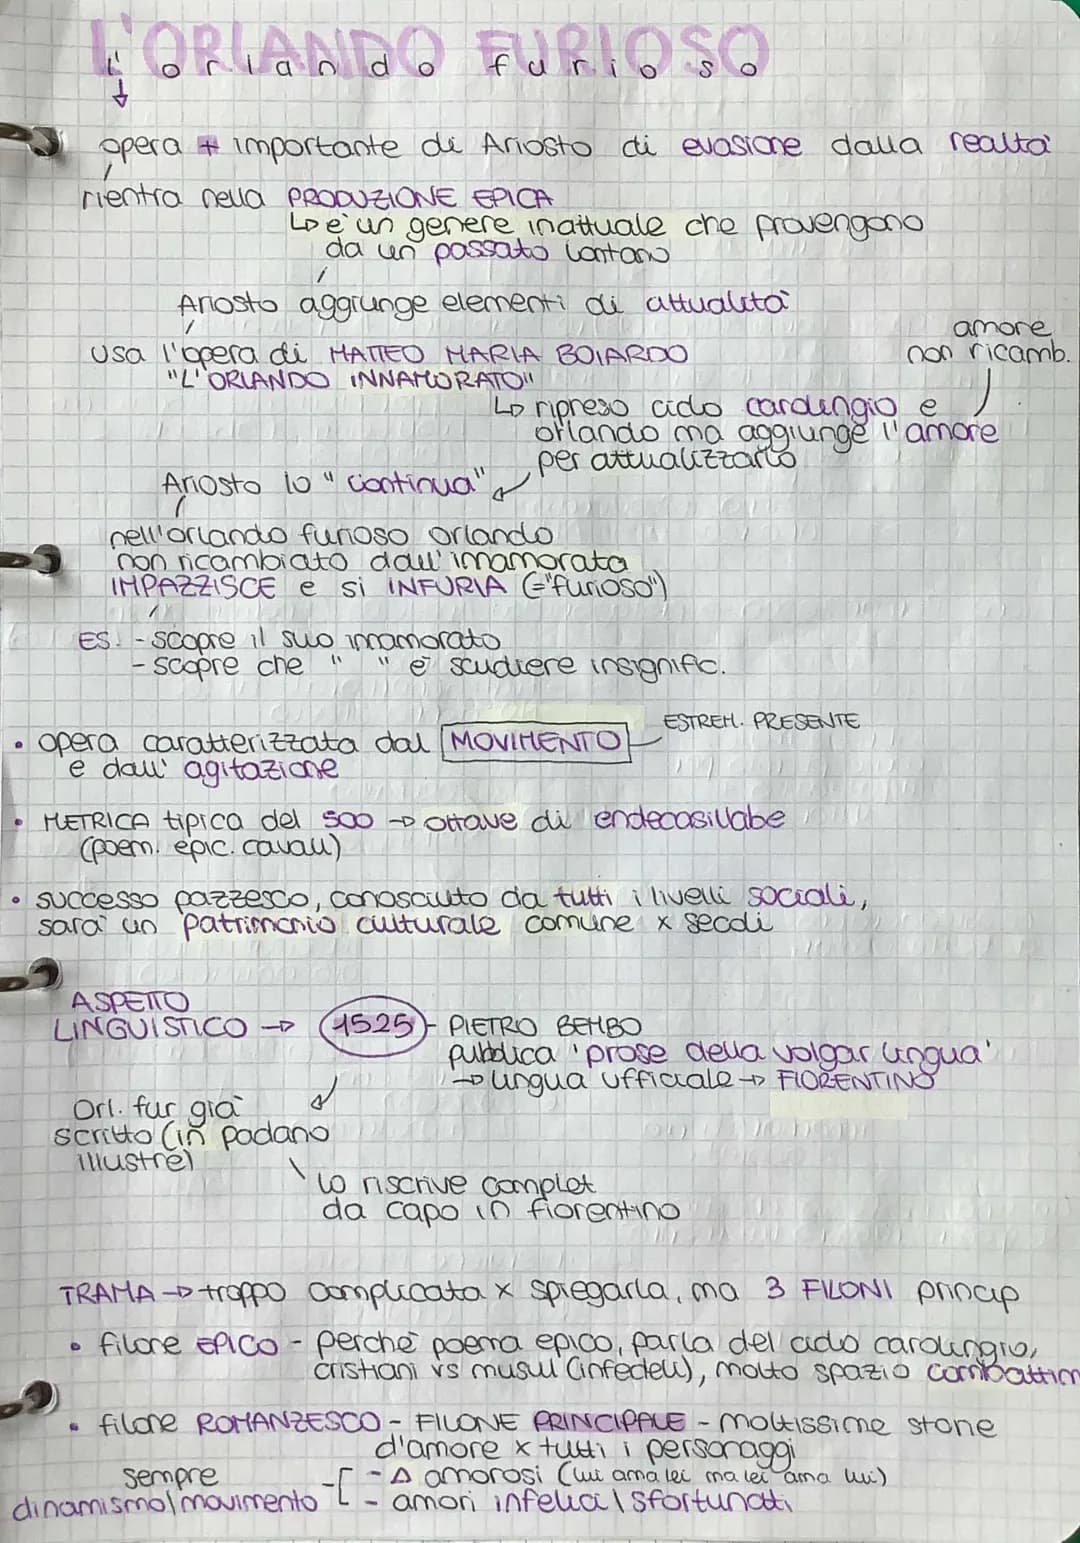 L'ORLANDO FURIOSO
L'orlando furioso
↓
opera + importante di Ariosto di evasione dalla realtà
rientra nella PRODUZIONE EPICA
↳ è un genere inattuale che provengono
da un passato lontano
Ariosto aggiunge elementi di attualità
amore
non ricamb.
usa l'opera di MATTEO MARIA BOIARDO
"L'ORLANDO INNAMORATO"
↳ ripreso ciclo carolingio e
orlando ma aggiunge l'amore
per attualizzarlo
Ariosto lo "continua"
nell'orlando furioso orlando
non ricambiato dall'innamorata
IMPAZZISCE e si INFURIA (="furioso")
ES. - scopre il suo innamorato
- scopre che " " è scudiere insignific.
• opera caratterizzata dal MOVIMENTO - ESTREM. PRESENTE
e dall'agitazione
• METRICA tipica del 500 → ottave di endecasillabe
(poem. epic. cavall)
• successo pazzesco, conosciuto da tutti i livelli sociali,
sarà un patrimonio culturale comune x secoli
ASPETTO
LINGUISTICO → 1525 - PIETRO BEMBO
pubblica 'prose della volgar lingua'
→ lingua ufficiale → FIORENTINO
Orl. fur già
scritto (in padano
illustre)
lo riscrive complet
da capo in fiorentino
TRAMA → troppo complicata x spiegarla, ma 3 FILONI princip
• filone EPICO - perchè poema epico, parla del ciclo carolingio,
cristiani vs musul (infedeli), molto spazio combattim
• filone ROMANZESCO - FILONE PRINCIPALE - moltissime storie
d'amore x tutti i personaggi
sempre
dinamismo/movimento
- Δ amorosi (lui ama lei ma lei ama lui)
- amori infelici / sfortunati